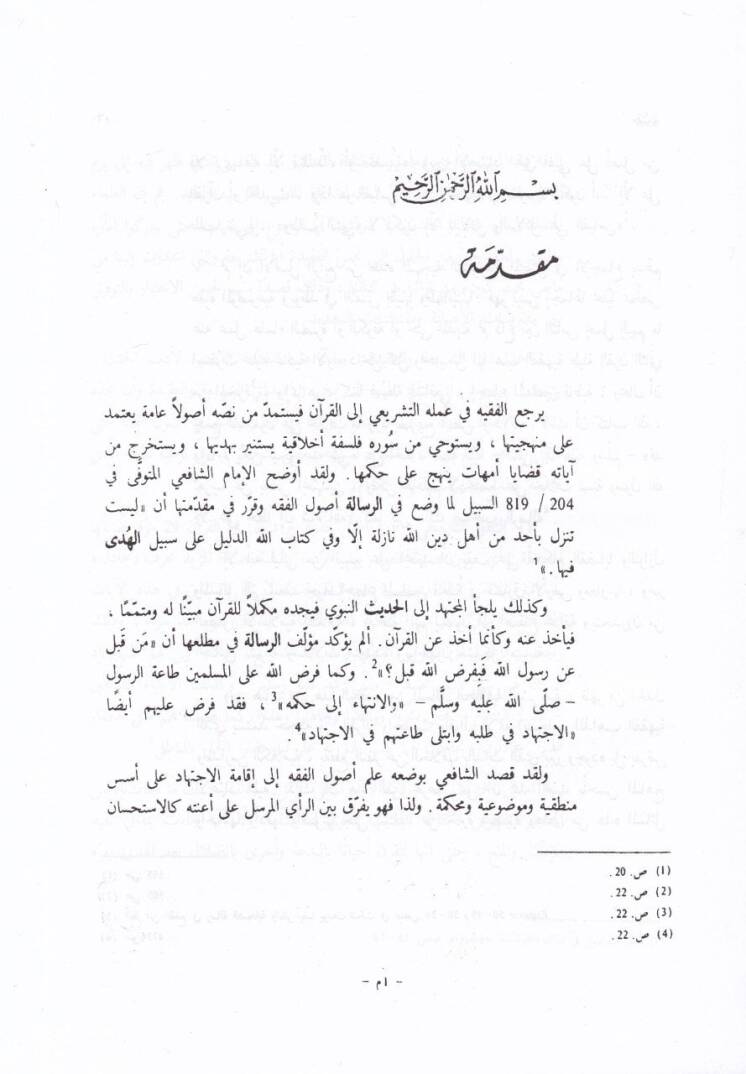 بسم الله الرحمن الرحيم
مقدّمة
يرجع الفقيه في عمله التشريعي إلى القرآن فيستمدّ من نصّه أصولاً عامة يعتمد
على منهجيتها ، ويستوحي من سُوره فلسفة أخلاقية يستنير بهديها ، ويستخرج من
آياته قضايا أمهات ينهج على حكمها. ولقد أوضح الإمام الشافعي المتوفَّى في
204 / 819 السبيل لما وضع في الرسالة أصول الفقه وقرّر في مقدّمتها أن «ليست
تنزل بأحد من أهل دين الله نازلة إلّا وفي كتاب الله الدليل على سبيل الهُدى
فيها.»1
وكذلك يلجأ المجتهد إلى الحديث النبوي فيجده مكملاً للقرآن مبيّنًا له ومتمّمًا ،
فيأخذ عنه وكأنما أخذ عن القرآن. ألم يؤكّد مؤلّف الرسالة في مطلعها أن «مَن قَبل
عن رسول الله فَبِفرض الله قبل؟»2. وكما فرض الله على المسلمين طاعة الرسول
– صلّى الله عليه وسلَّم – «والانتهاء إلى حكمه»3 ، فقد فرض عليهم أيضًا
«الاجتهاد في طلبه وابتلى طاعتهم في الاجتهاد»4.
ولقد قصد الشافعي بوضعه علم أصول الفقه إلى إقامة الاجتهاد على أسس
منطقية وموضوعية ومحكمة. ولذا فهو يفرّق بين الرأي المرسل على أعنته كالاستحسان
(1) ص. 20.
(2) ص. 22.
(3) ص. 22.
(4) ص. 22.
- ١م -